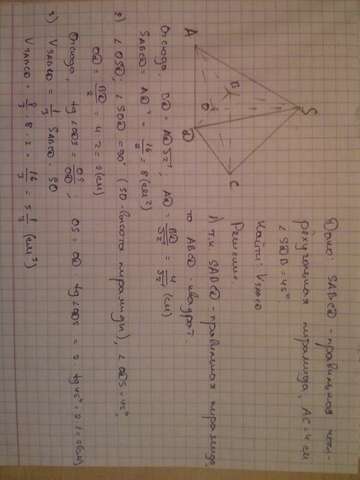 Дано: SABCD - правильная четы-
рёхугольная пирамида, AC = 4 см
∠ SDB = 45°
Найти: V SABCD
Решение:
1) т.к. SABCD - правильная пирамида,
то ABCD - квадрат
A
B
O
D
C
S
Отсюда BD = AD√2, AD = BD/√2 = 4/√2 (см)
SABCD = AD² = 16/2 = 8 (см²)
2) ∠ OSD; ∠ SOD = 90° (SO - высота пирамиды), ∠ ODS = 45°
OD = BD/2 = 4:2 = 2 (см)
Отсюда, tg ∠ODS = OS/OD; OS = OD · tg∠ODS = 2 · tg 45° = 2·1 = 2 (см)
3) V SABCD = 1/3 SABCD · SO
V SABCD = 1/3 · 8 · 2 = 16/3 = 5 1/3 (см³)